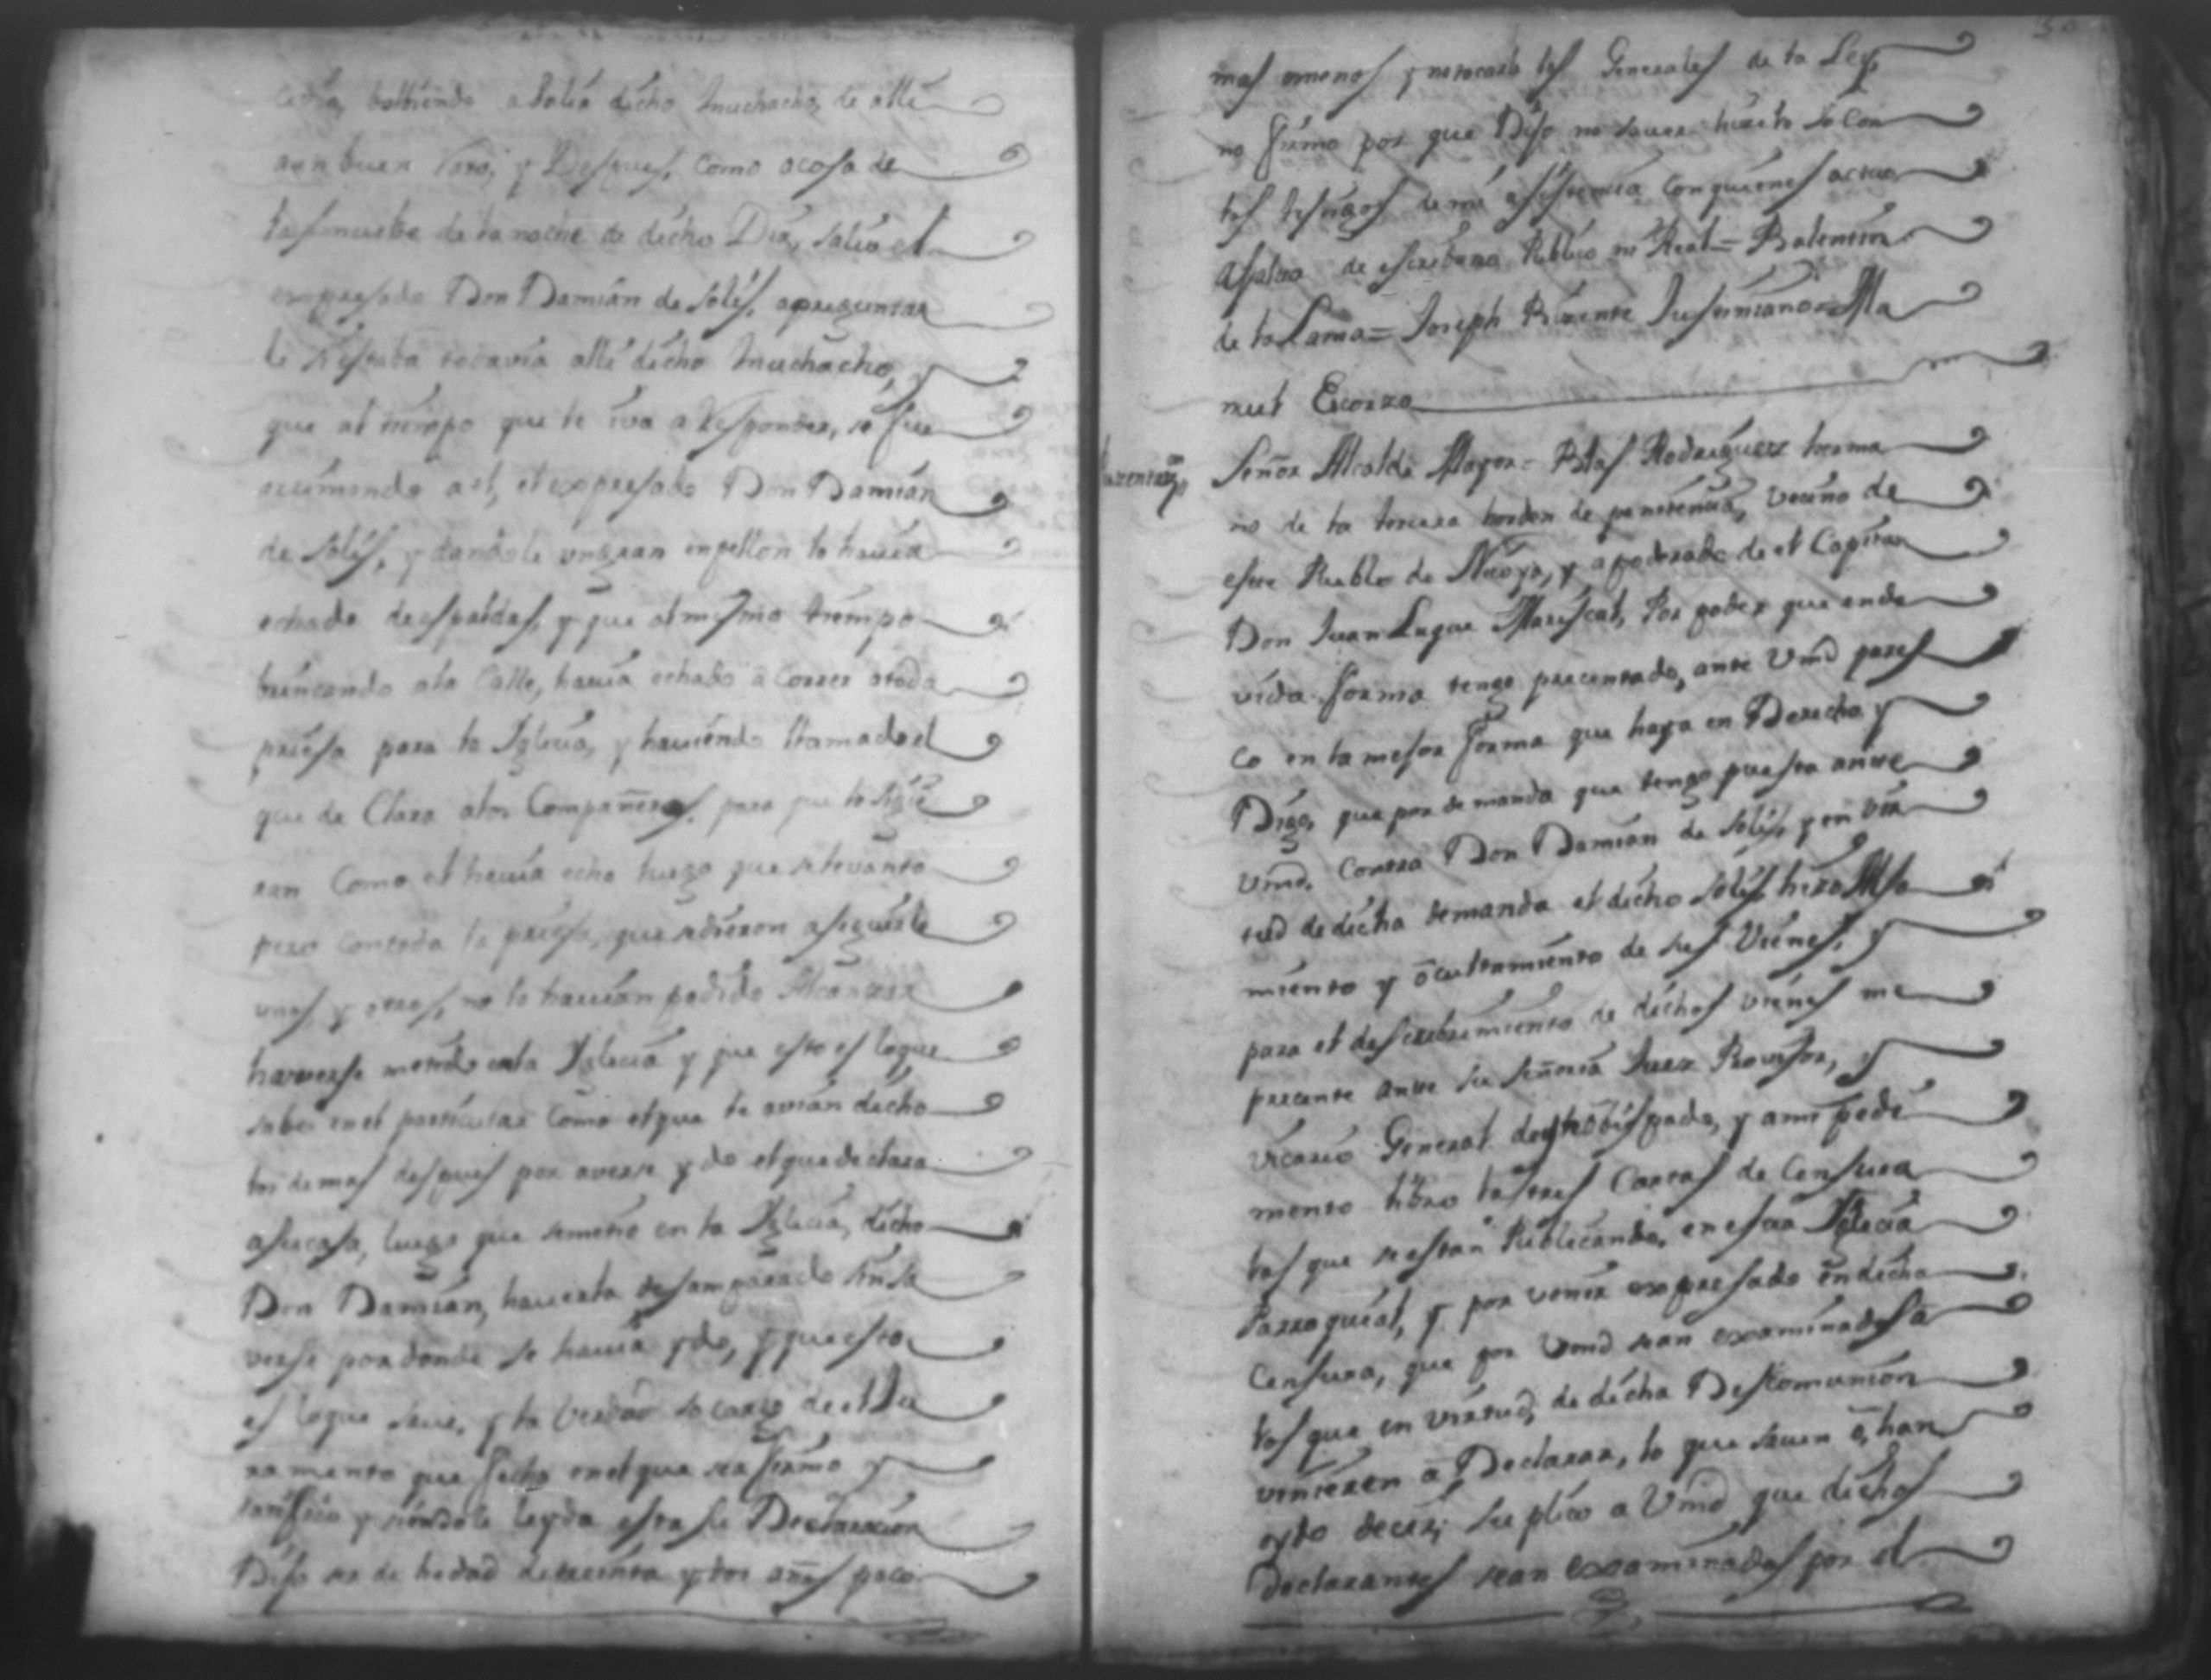 bolbiendo a Salir dicho muchacho, de alli
aun buen Rato, y Despues, como acosa de
las nuebe de la noche de dicho Dia, salio el
expresado Don Damian de Solis, apreguntar
le si estaba todavia alli dicho muchacho, y
que al tiempo que le iva a Responder, se fue
arrimando a el, el expresado Don Damian
de Solis, y dandole un gran enpellon lo havia
echado de espaldas, y que al mismo tiempo
brincando ala Calle, havia echado â Correr atoda
priesa para la Iglecia, y haviendo llamado el
que de Clara alos Compañeros, para que lo sigie
ran Como el havia echo luego que se levanto
pero con toda la priesa, que se dieron aseguirle
unos y otros, no lo havian podido Alcanzar
haverse metido enla Iglecia y que esto es loque
sabe en el particular Como el que le avian dicho
los demas despues por averse ydo el que declara
asucasa, luego que semetio en la Iglecia, dicho
Don Damian, haverla desamparado sin sa
verse por donde se havia ydo, y que esto
es loque save, y la verdad so cargo de el Ju
ramento que fecho en el que se afirmo y
ratifico y siendole leyda esta su Declaracion
Dijo ser de hedad de treinta y dos años poco
mas omenos y notocarle las Generales de la Ley,
no firmo por que Dijo no saver hicelo Io con
los testigos de mi asistencia con quienes actuo
afalta de escribano Publico ni Real = Balentin
de la Lama = Joseph Bizente Justiniano = Ma
nuel Escorza
Señor Alcalde Mayor = Blas Rodriguez herma
no de la tercera horden de penitencia, vecino de
este Pueblo de Nicoya, y apoderado de el Capitan
Don Juan Lugar Mariscal, Por poder que ende
vida forma tengo precentado, ante Vmd pares
co en la mejor forma que haya en Derecho y
Digo, que por demanda que tengo puesta ante
Vmd. Contra Don Damian de Solis, y en vir
tud de dicha demanda el dicho Solis, hizo Alsa
miento y ôcultamiento de sus Vienes, y
para el descubrimiento de dichos vienes me
precente ante su Señoria Juez Provisor, y
vicario General de este obispado, y ami pedi
mento libro las tres Cartas de Censura
las que se estan Publicando, en esta Iglecia
Parroquial, y por venir expresado en dicha
Censura, que por Vmd sean examinados â
los que en virtud, de dicha Descomunion
vinieren â Declarar, lo que saven ô, han
oydo decir; suplico a Vmd que dichos
Declarantes sean examinados por el